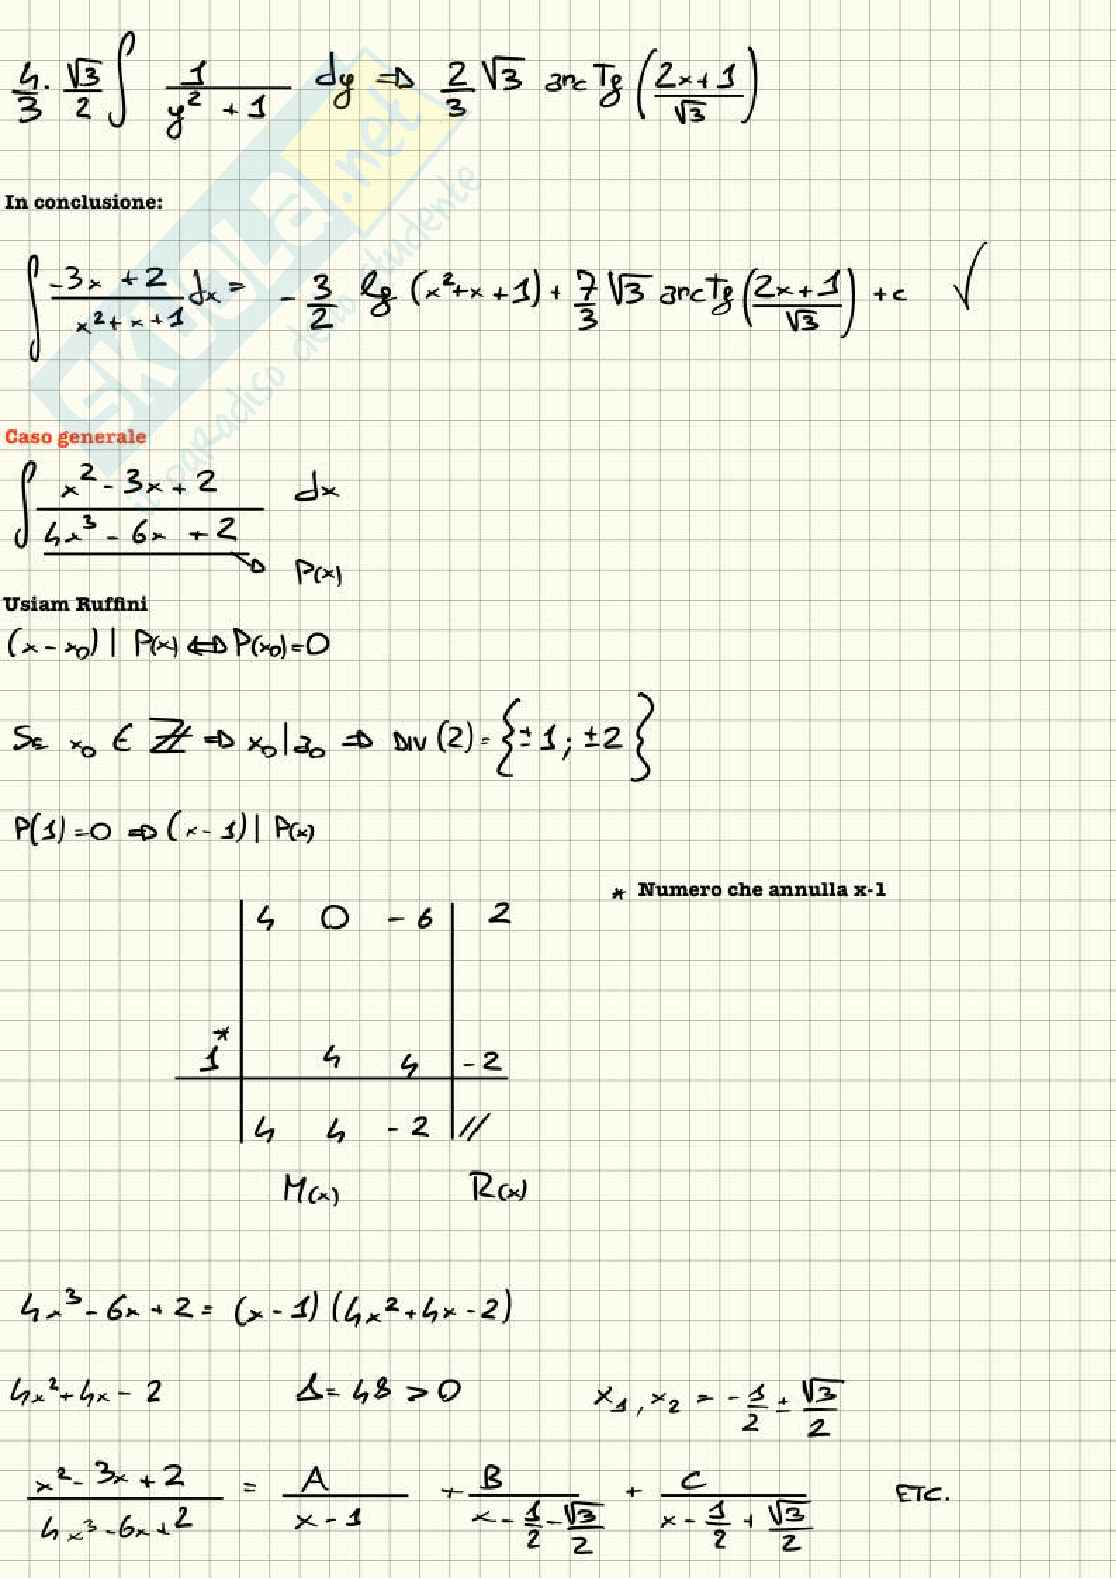 4/3 · √3/2 ∫ 1/(y² + 1) dy ⇒ 2/3 √3 arcTg ((2x+1)/√3)
In conclusione:
∫ (-3x + 2)/(x² + x + 1) dx = - 3/2 lg (x²+x+1) + 7/3 √3 arcTg ((2x+1)/√3) + c √
Caso generale
∫ (x² - 3x + 2)/(4x³ - 6x + 2) dx
→ P(x)
Usiam Ruffini
(x - x₀) | P(x) ⇔ P(x₀) = 0
SE x₀ ∈ ℤ ⇒ x₀ | a₀ ⇒ DIV (2) = {±1; ±2}
P(1) = 0 ⇒ (x - 1) | P(x)
* Numero che annulla x-1
4 0 -6 | 2
1* | 4 4 | -2
4 4 -2 | //
M(x) R(x)
4x³ - 6x + 2 = (x - 1) (4x² + 4x - 2)
4x² + 4x - 2 Δ = 48 > 0 x₁, x₂ = - 1/2 ± √3/2
(x² - 3x + 2)/(4x³ - 6x + 2) = A/(x - 1) + B/(x - 1/2 - √3/2) + C/(x - 1/2 + √3/2) ETC.
SKUOLA.net
il paradiso dello studente